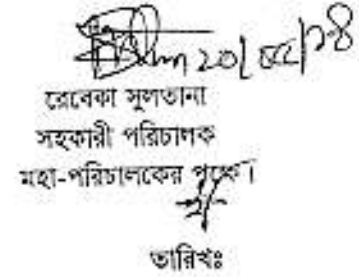 রেবেকা সুলতানা
সহকারী পরিচালক
মহা-পরিচালকের পক্ষে।
তারিখঃ